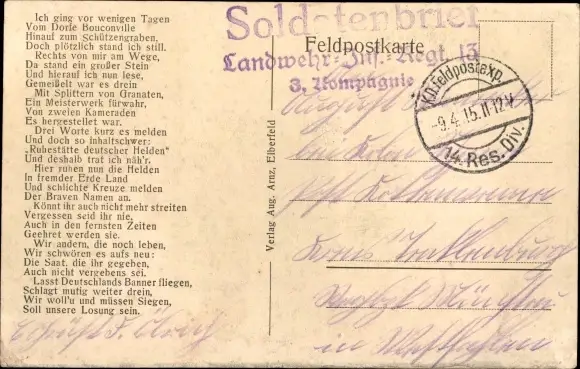 Ich ging vor wenigen Tagen
Vom Dorfe Bouconville
Hinauf zum Schützengraben,
Doch plötzlich stand ich still.
Rechts von mir am Wege,
Da stand ein großer Stein
Und hierauf ich nun lese,
Gemeißelt war es drein
Mit Splittern von Granaten,
Ein Meisterwerk fürwahr,
Von zweien Kameraden
Es hergestellet war.
Drei Worte kurz es melden
Und doch so inhaltschwer:
„Ruhestätte deutscher Helden"
Und deshalb trat ich näh'r.
Hier ruhen nun die Helden
In fremder Erde Land
Und schlichte Kreuze melden
Der Braven Namen an.
Könnt ihr auch nicht mehr streiten
Vergessen seid ihr nie,
Auch in den fernsten Zeiten
Geehret werden sie.
Wir andern, die noch leben,
Wir schwören es aufs neu:
Die Saat, die ihr gegeben,
Auch nicht vergebens sei.
Lasst Deutschlands Banner fliegen,
Schlagt mutig weiter drein,
Wir woll'n und müssen Siegen,
Soll unsere Losung sein.
Verlag Aug. Arnz, Elberfeld
Soldatenbrief
Feldpostkarte
Landwehr-Inf.-Regt. 13
3. Kompagnie
K.D. Feldpostexp.
-9.4.15.11-12V
14. Res. Div.
August
bei
Post
Kreis Tecklenburg
Münster
in Westfalen